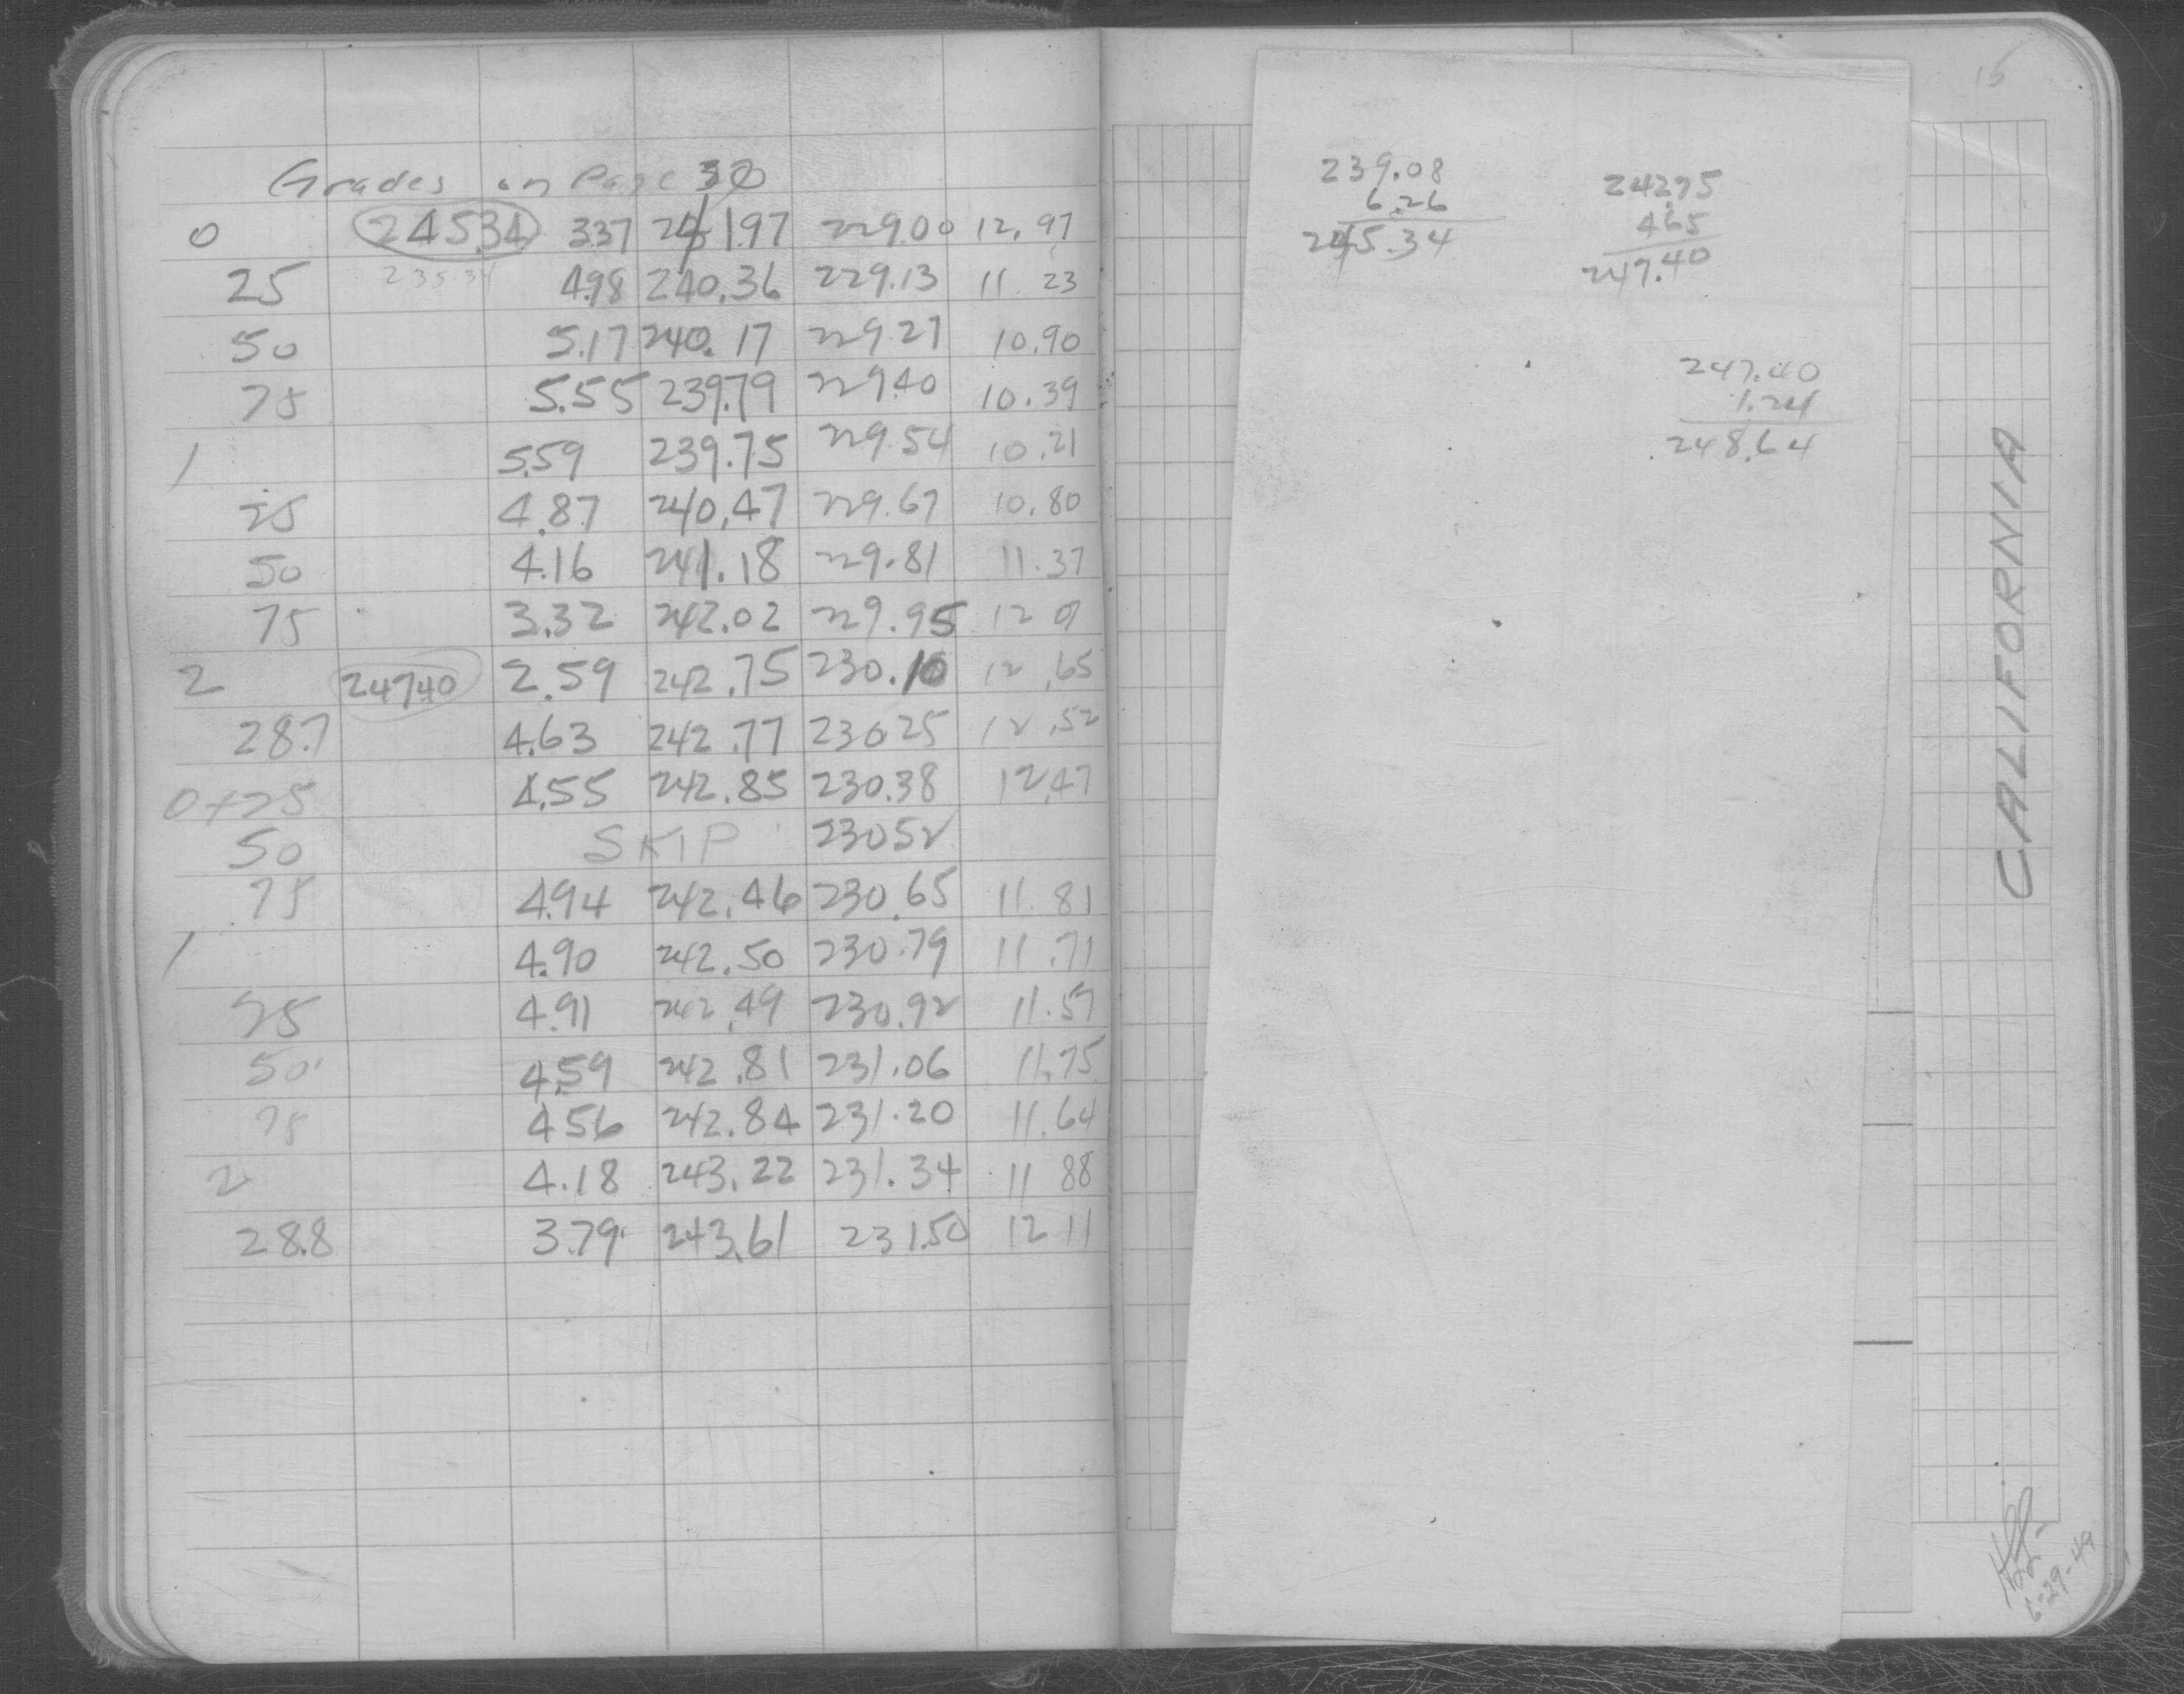 Grades on Page 30
0 245.34 3.37 241.97 229.00 12.97
25 235.34 4.98 240.36 229.13 11 23
50 5.17 240.17 229.27 10.90
75 5.55 239.79 229.40 10.39
1 5.59 239.75 229.54 10.21
25 4.87 240.47 229.67 10.80
50 4.16 241.18 229.81 11.37
75 3.32 242.02 229.95 12 07
2 247.40 2.59 242.75 230.10 12.65
28.7 4.63 242.77 230.25 12.52
0+25 4.55 242.85 230.38 12.47
50 SKIP 230.52
75 4.94 242.46 230.65 11.81
1 4.90 242.50 230.79 11.71
25 4.91 242.49 230.92 11.57
50 4.59 242.81 231.06 11.75
75 4.56 242.84 231.20 11.64
2 4.18 243.22 231.34 11 88
28.8 3.79 243.61 231.50 12 11
15
239.08
6.26
245.34
242.75
4.65
247.40
247.40
1.24
248.64
CALIFORNIA
6-29-49